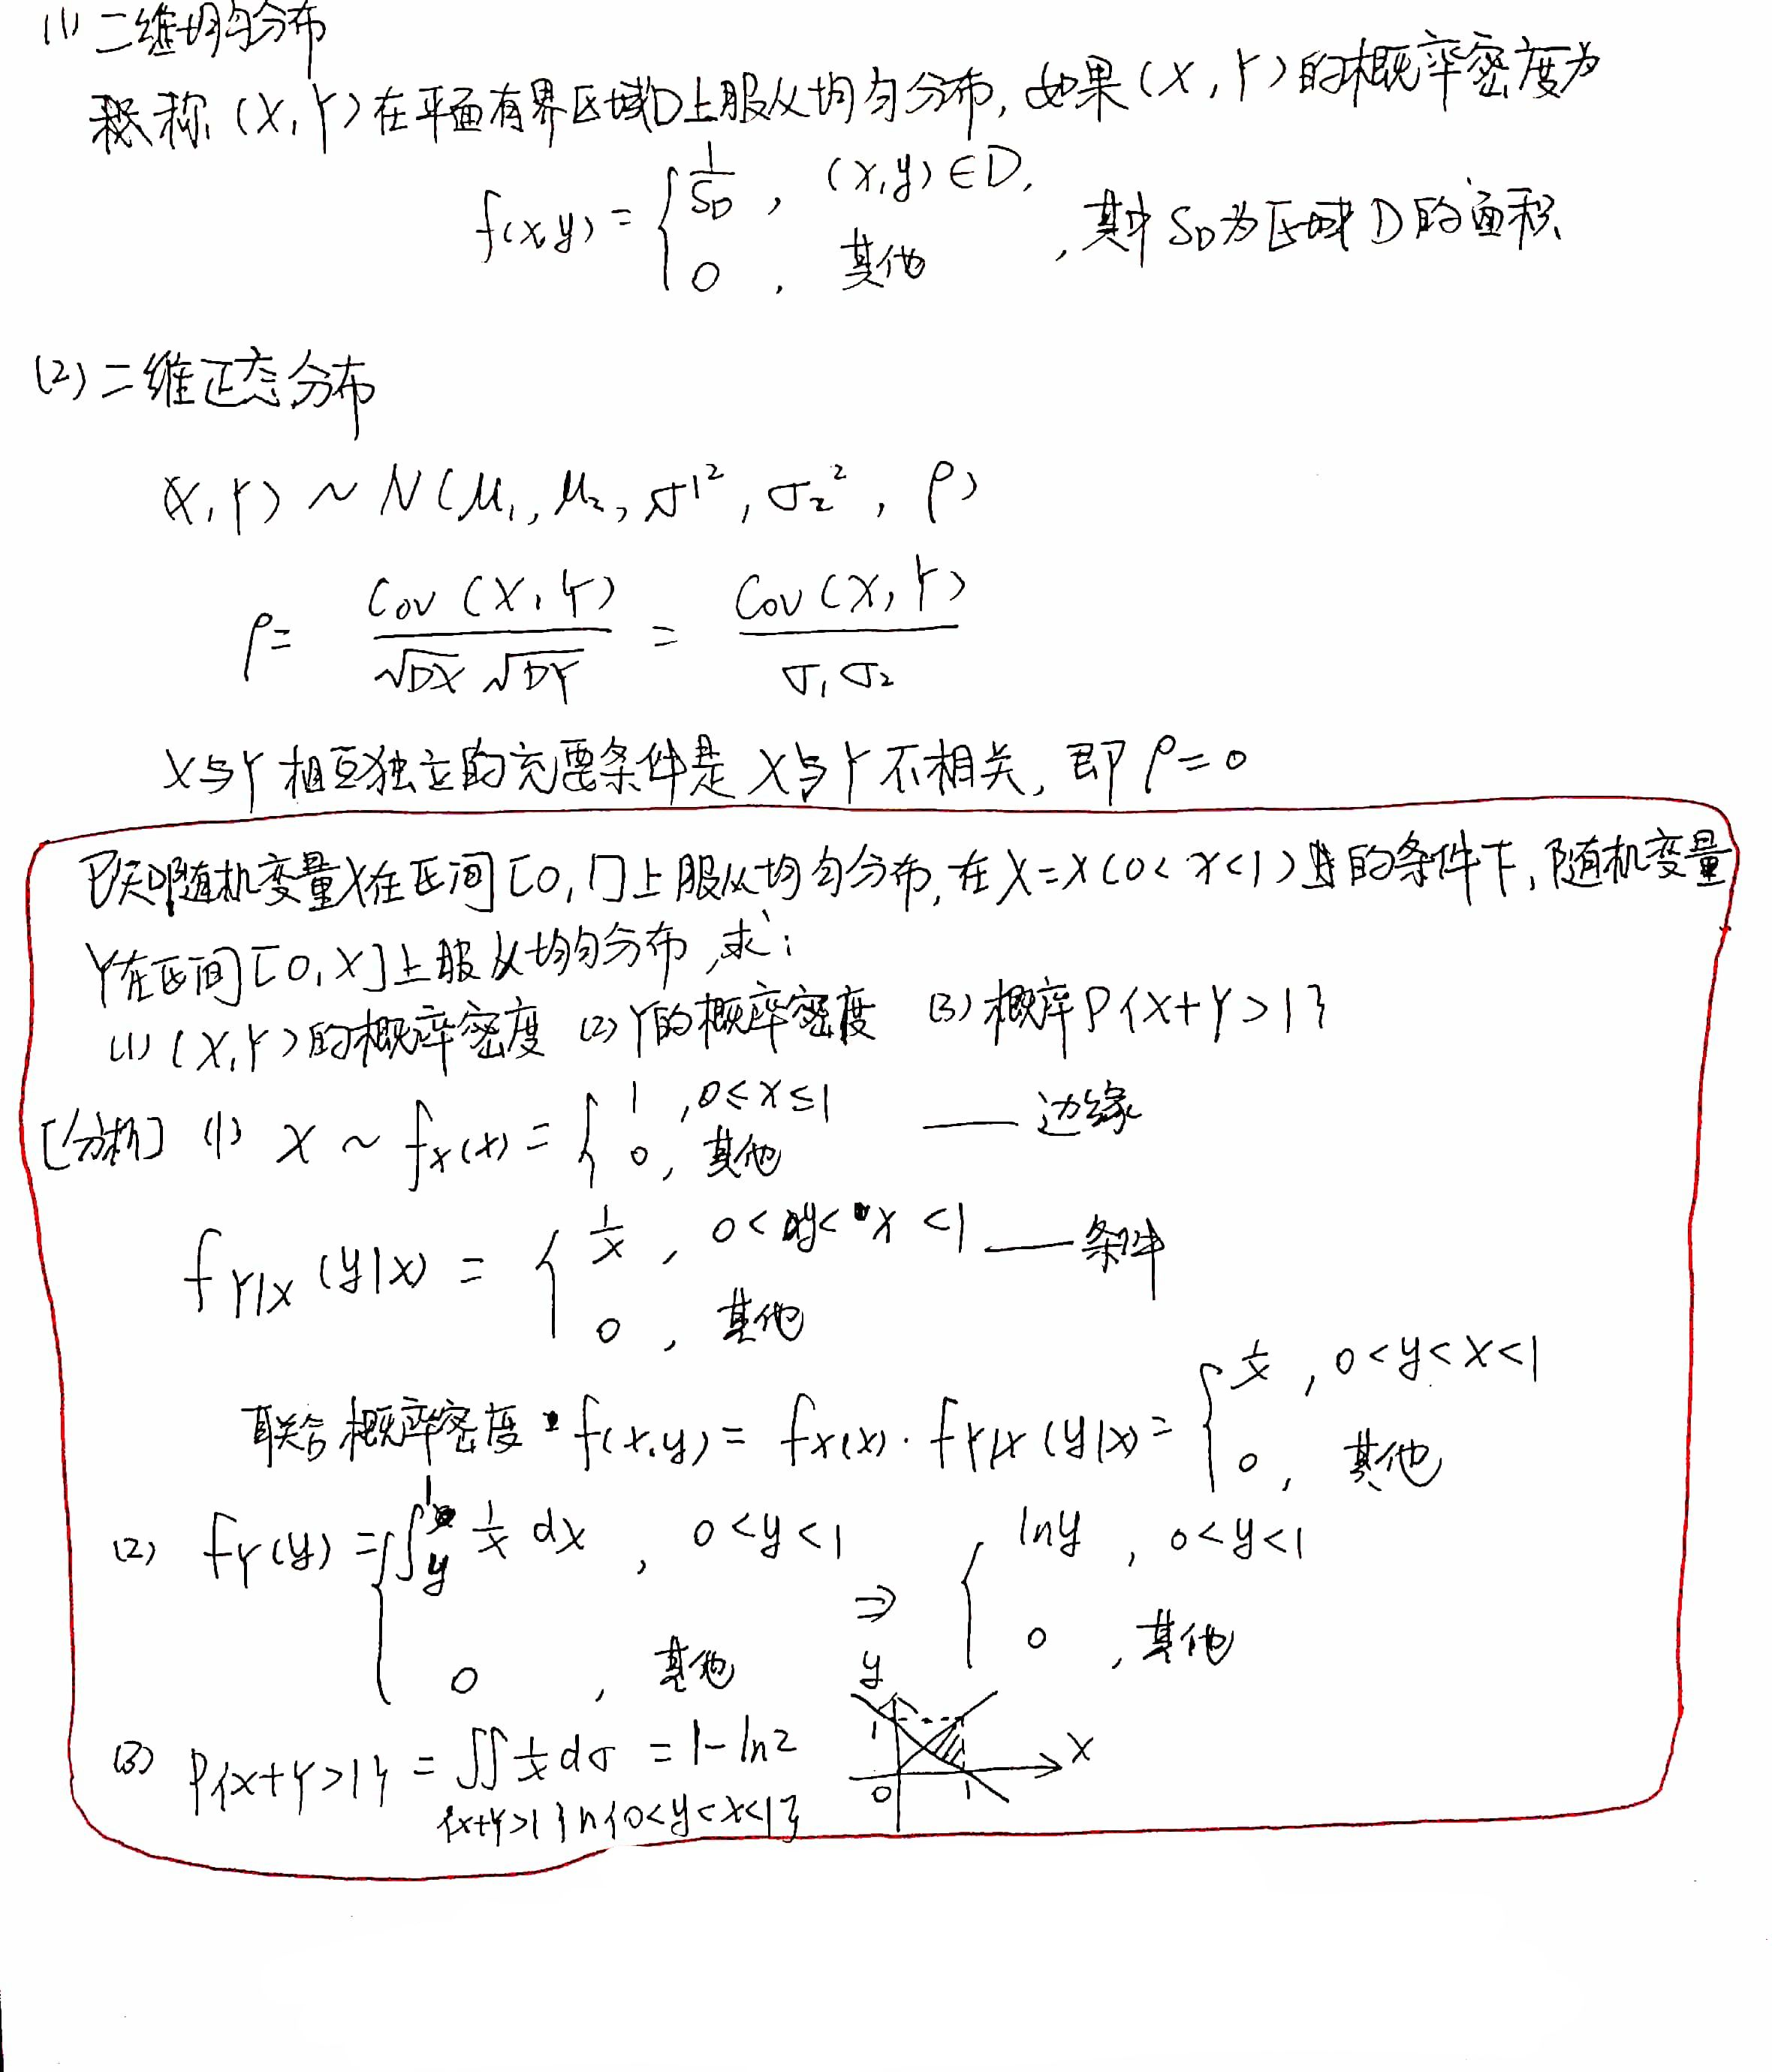 (1) 二维均匀分布
称 (X,Y)在平面有界区域D上服从均匀分布, 如果(X,Y)的概率密度为
f(x,y) = { 1/S_D , (x,y)∈D, 0 , 其他 , 其中 S_D为区域D的面积
(2) 二维正态分布
(X,Y) ~ N(μ₁, μ₂, σ1², σ₂², ρ)
ρ = Cov(X,Y) / (√DX √DY) = Cov(X,Y) / (σ₁σ₂)
X与Y相互独立的充要条件是X与Y不相关, 即ρ=0
已知随机变量X在区间[0,1]上服从均匀分布, 在X=x(0<x<1)的条件下, 随机变量
Y在区间[0,X]上服从均匀分布, 求:
(1) (X,Y)的概率密度 (2) Y的概率密度 (3) 概率P{X+Y>1}
[分析] (1) X ~ f_X(x) = { 1 , 0≤x≤1 0, 其他 —— 边缘
f_{Y|X}(y|x) = { 1/x , 0<y<x<1 0 , 其他 —— 条件
联合概率密度: f(x,y) = f_X(x)·f_{Y|X}(y|x) = { 1/x , 0<y<x<1 0, 其他
(2) f_Y(y) = { ∫_y^1 1/x dx , 0<y<1 0 , 其他 ⇒ { lny , 0<y<1 0 , 其他
(3) P{X+Y>1} = ∬ 1/x dσ = 1-ln2
{x+y>1}∩{0<y<x<1}
y
1
0 1 x